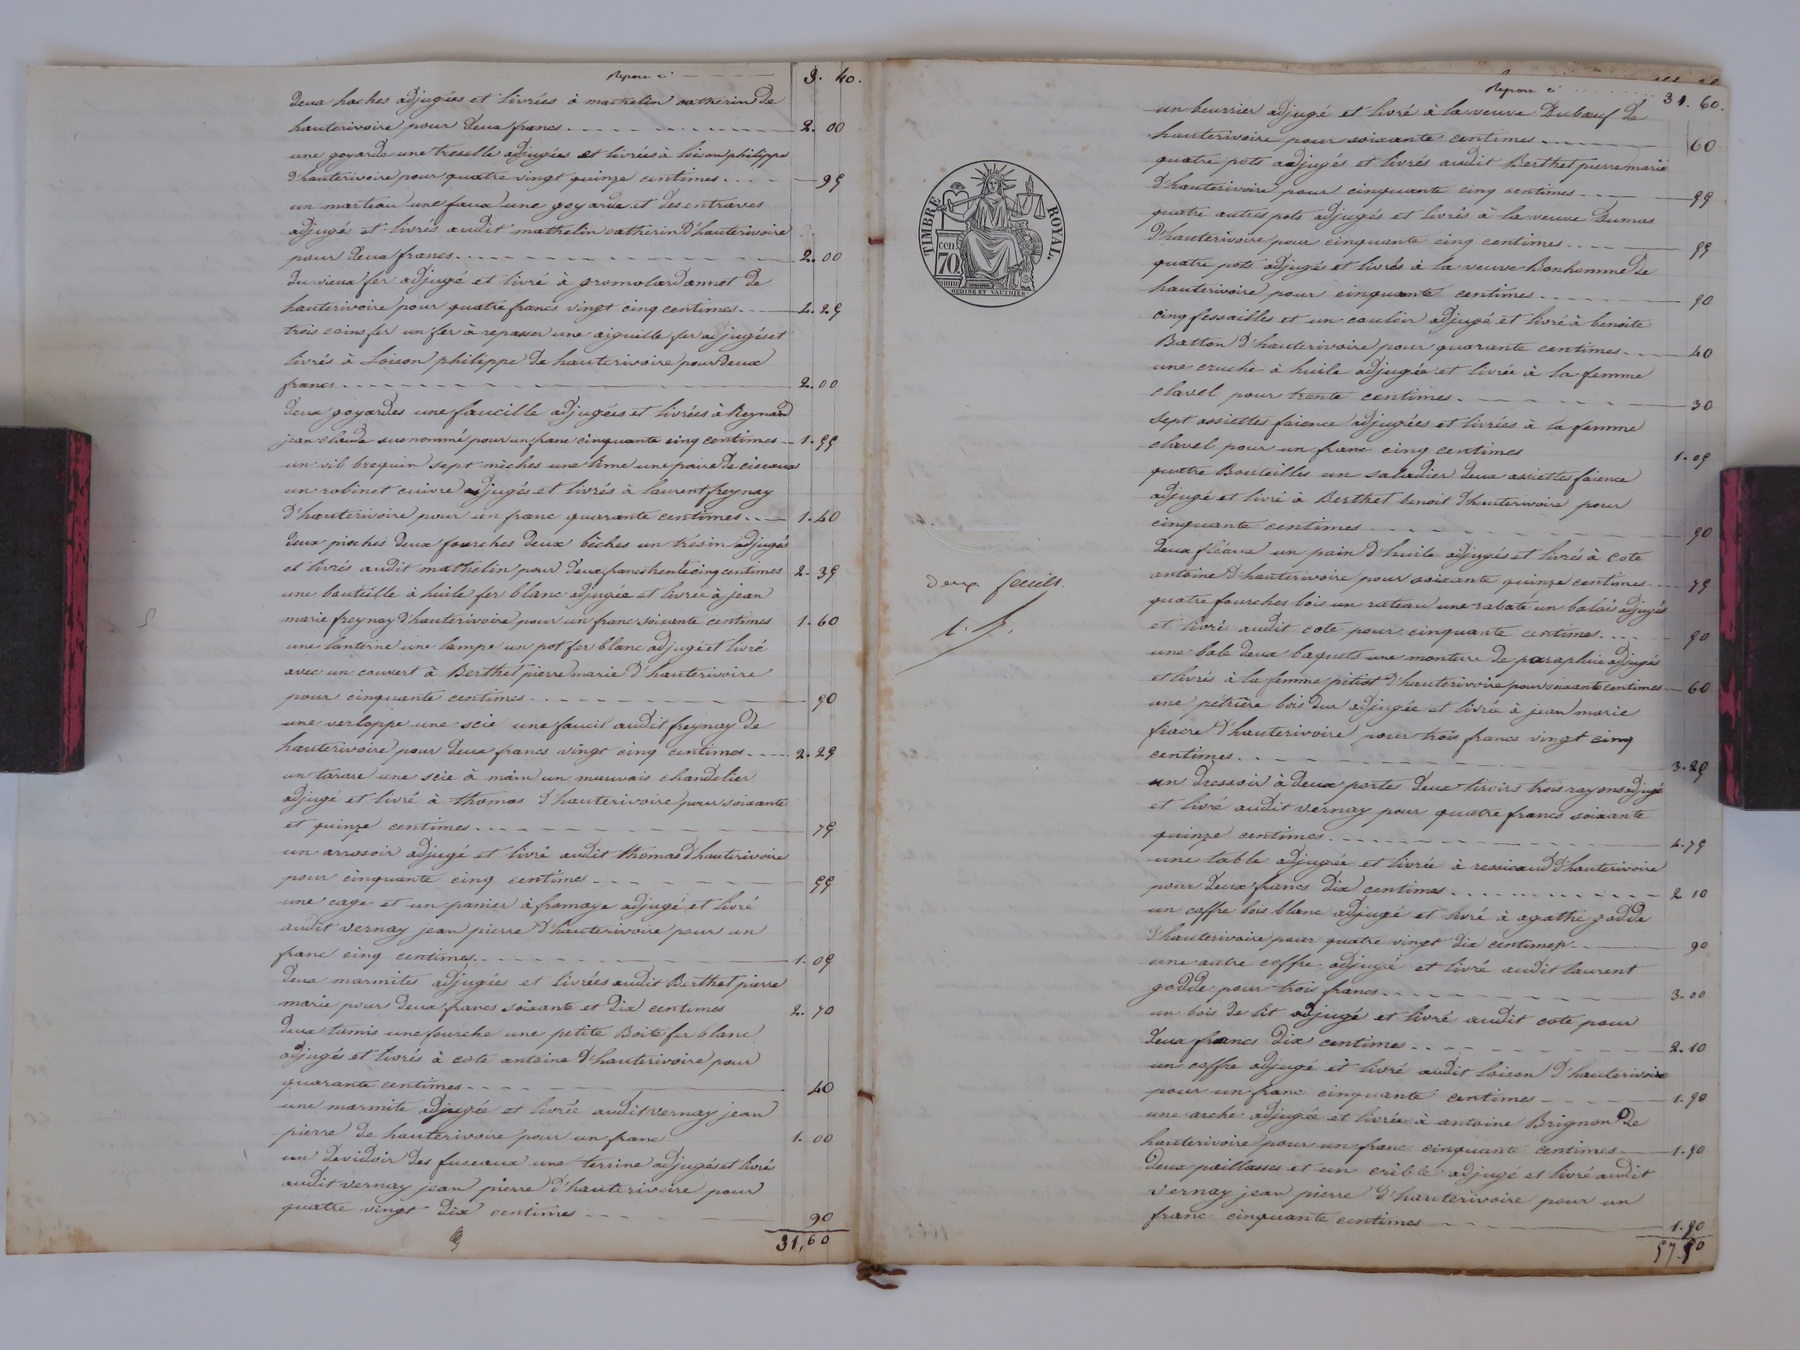 Report ci 3. 40.
deux haches adjugées et livrées à mathelin catherin de
hauterivoire pour deux francs 2. 00
une goyarde une treselle adjugées et livrées à loison philippe
d'hauterivoire pour quatre vingt quinze centimes 95
un marteau une faux une goyarde et des entraves
adjugés et livrés audit mathelin catherin d'hauterivoire
pour deux francs 2. 00
du vieux fer adjugé et livré à gromolard annet de
hauterivoire pour quatre francs vingt cinq centimes 4. 25
trois coins fer un fer à repasser une aiguille fer adjugés et
livrés à Loison philippe de hauterivoire pour deux
francs 2. 00
deux goyardes une faucille adjugées et livrées à Reynard
jean claude susnommé pour un franc cinquante cinq centimes 1. 55
un vilbrequin sept mèches une lime une paire de ciseaux
un robinet cuivre adjugés et livrés à laurent freynay
d'hauterivoire pour un franc quarante centimes 1. 40
deux pioches deux fourches deux bêches un trésin adjugés
et livrés audit mathelin pour deux francs trente cinq centimes 2. 35
une bouteille à huile fer blanc adjugée et livrée à jean
marie freynay d'hauterivoire pour un franc soixante centimes 1. 60
une lanterne une lampe un pot fer blanc adjugé et livré
avec un couvert à Berthet pierre marie d'hauterivoire
pour cinquante centimes 50
une verloppe une scie une faucil audit freynay de
hauterivoire pour deux francs vingt cinq centimes 2. 25
un tarare une scie à main un mauvais chandelier
adjugé et livré à thomas d'hauterivoire pour soixante
et quinze centimes 75
un arrosoir adjugé et livré audit thomas d'hauterivoire
pour cinquante cinq centimes 55
une cage et un panier à fromage adjugé et livré
audit vernay jean pierre d'hauterivoire pour un
franc cinq centimes 1. 05
deux marmites adjugées et livrées audit Berthet pierre
marie pour deux francs soixante et dix centimes 2. 70
deux tamis une fourche une petite Boite fer blanc
adjugés et livrés à cote antoine d'hauterivoire pour
quarante centimes 40
une marmite adjugée et livrée audit vernay jean
pierre de hauterivoire pour un franc 1. 00
un devidoir des fuseaux une terrine adjugés et livrés
audit vernay jean pierre d'hauterivoire pour
quatre vingt dix centimes 90
31, 60
TIMBRE ROYAL.
cen 70
deux feuille.
Report ci 31. 60.
un beurrier adjugé et livré à la veuve Dubœuf de
hauterivoire pour soixante centimes 60
quatre pots adjugés et livrés audit Berthet pierre marie
d'hauterivoire pour cinquante cinq centimes 55
quatre autres pots adjugés et livrés à la veuve Dumas
d'hauterivoire pour cinquante cinq centimes 55
quatre pots adjugés et livrés à la veuve Bonhomme de
hauterivoire pour cinquante centimes 50
cinq fessailles et un couloir adjugé et livré à benoite
Batton d'hauterivoire pour quarante centimes 40
une cruche à huile adjugée et livrée à la femme
clavel pour trente centimes 30
sept assiettes faience adjugées et livrées à la femme
clavel pour un franc cinq centimes 1. 05
quatre Bouteilles un saladier deux assiettes faience
adjugé et livré à Berthet benoit d'hauterivoire pour
cinquante centimes 50
deux fléaux un pain d'huile adjugés et livrés à cote
antoine d'hauterivoire pour soixante quinze centimes 75
quatre fourches bois un rateau une rabate un balais adjugés
et livré audit cote pour cinquante centimes 50
une bale deux baquets une monture de parapluie adjugés
et livrés à la femme pitiot d'hauterivoire pour soixante centimes 60
une pétrière bois dur adjugée et livrée à jean marie
fiacre d'hauterivoire pour trois francs vingt cinq
centimes 3. 25
un dressoir à deux portes deux tiroirs trois rayons adjugé
et livré audit vernay pour quatre francs soixante
quinze centimes 4. 75
une table adjugée et livrée à ressicaud d'hauterivoire
pour deux francs dix centimes 2 10
un coffre bois blanc adjugé et livré à agathe godde
d'hauterivoire pour quatre vingt dix centimes 90
une autre coffre adjugé et livré audit laurent
godde pour trois francs 3. 00
un bois de lit adjugé et livré audit cote pour
deux francs dix centimes 2. 10
un coffre adjugé et livré audit loison d'hauterivoire
pour un franc cinquante centimes 1. 50
une arche adjugée et livrée à antoine Brignon de
hauterivoire pour un franc cinquante centimes 1. 50
deux paillasses et un crible adjugé et livré audit
vernay jean pierre d'hauterivoire pour un
franc cinquante centimes 1. 50
57. 50